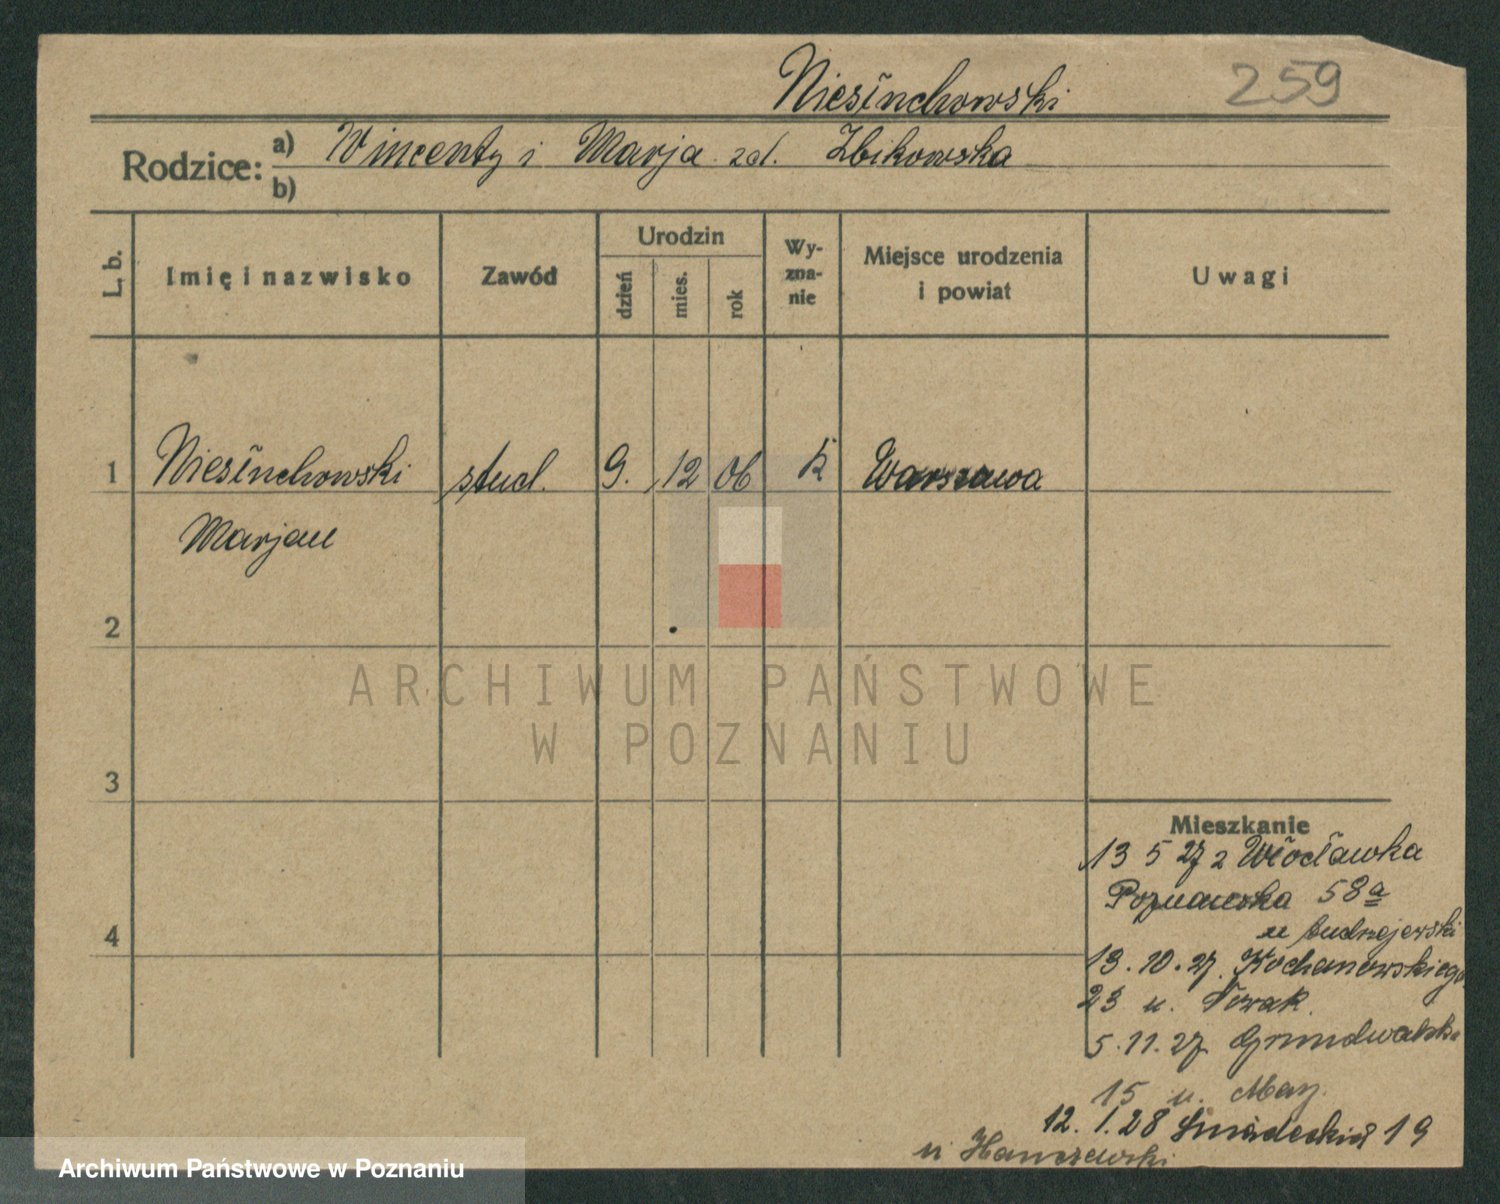 Niesĭuchowski 259
Rodzice: a) Wincenty i Marja zd. Zbikowska
b)
L. b. Imię i nazwisko Zawód Urodzin dzień mies. rok Wy-zna-nie Miejsce urodzenia i powiat Uwagi
1 Niesĭuchowski stud. 9. 12 06 K Warszawa
Marjan
2
3
4
Mieszkanie
13 5 27 z Włocławka
Poznańska 58a
u Andrzejewski
13.10.27. Kochanowskiego
23 u. Nowak.
5.11.27 Grunwaldzka
15 u.
12.1.28 Śniadeckich 19
u Hanczewski
ARCHIWUM PAŃSTWOWE
W POZNANIU
Archiwum Państwowe w Poznaniu